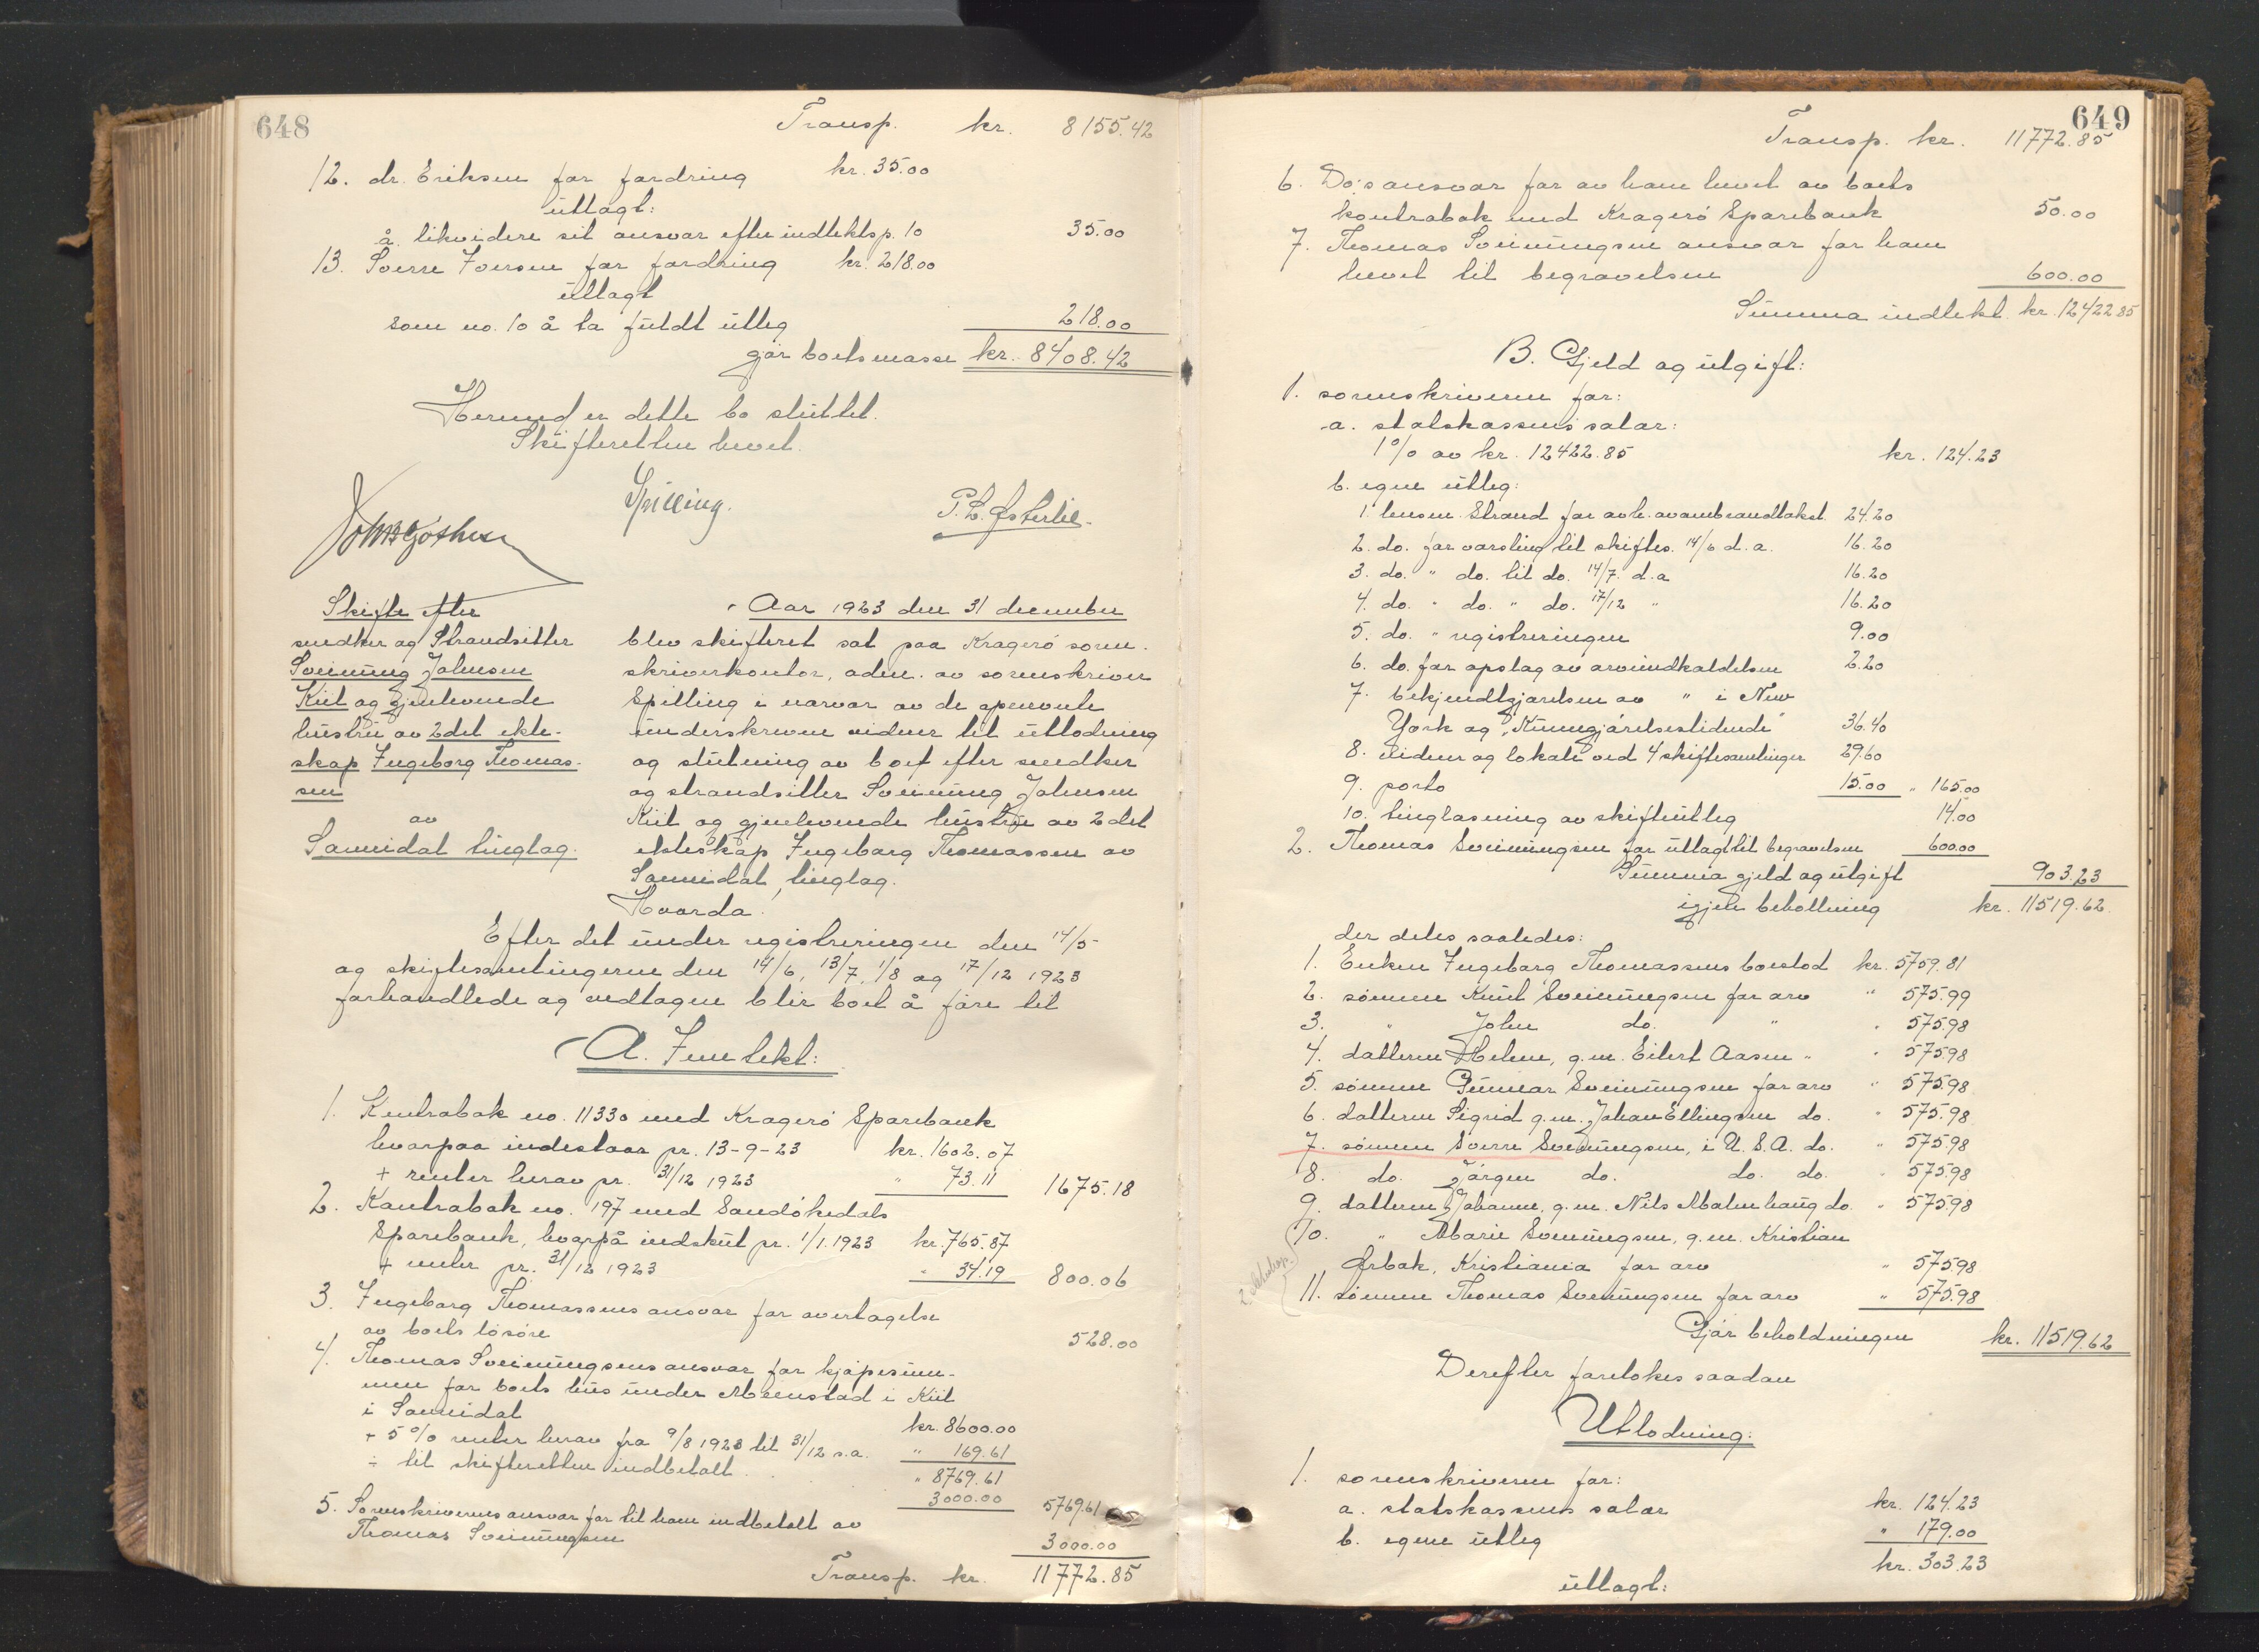 648
Transp. kr. 8155.42
12. dr. Eriksen for fordring kr. 35.00
utlagt:
å likvidere sit ansvar efter indtektsp. 10 35.00
13. Sverre Iversen for fordring kr. 218.00
utlagt
som no. 10 å ta fuldt utlæg 218.00
gjør boets masse kr. 8408.42
Hermed er dette bo sluttet.
Skifteretten hevet.
Spilling.
P. L. Østerlie.
Skifte efter
snedker og Strandsitter
Sveinung Johnsen
Kiil og gjenlevende
hustru av 2det ekte-
skap Ingeborg Thomas-
sen
av
Sannidal tinglag.
Aar 1923 den 31 december
blev skifteret sat paa Kragerø soren-
skriverkontor, adm. av sorenskriver
Spilling i nærvær av de opnævnte
underskrevne vidner til utlodning
og slutning av boet efter snedker
og strandsitter Sveinung Johnsen
Kiil og gjenlevende hustru av 2det
ekteskap Ingeborg Thomassen av
Sannidal tinglag.
Hvorda:
Efter det under registreringen den 14/5
og skiftesamlingerne den 14/6, 13/7, 1/8 og 17/12 1923
forhandlede og vedtagne blir boet å føre til
A. Inntekt:
1. Kontrabok no. 11330 med Kragerø Sparebank
hvorpaa indestaar pr. 13-9-23 kr. 1602.07
+ renter herav pr. 31/12 1923 " 73.11 1675.18
2. Kontrabok no. 197 med Sandøkedals
Sparebank, hvorpå indskut pr. 1/1.1923 kr. 765.87
+ renter pr. 31/12 1923 " 34.19 800.06
3. Ingeborg Thomassens ansvar for overtagelse
av boets løsøre 528.00
4. Thomas Sveinungsens ansvar for kjøpesum-
men for boets hus under Mænstad i Kiil
i Sannidal kr. 8600.00
+ 5 % renter herav fra 9/8 1923 til 31/12 s.a. " 169.61
÷ til skifteretten indbetalt " 8769.61
3000.00 5769.61
5. Sorenskriverens ansvar for til ham indbetalt av
Thomas Sveinungsen 3000.00
Transp. kr. 11772.85
649
Transp. kr. 11772.85
6. Do's ansvar for av ham hevet av boets
kontrabok med Kragerø Sparebank 50.00
7. Thomas Sveinungsen ansvar for ham
hevet til begravelsen 600.00
Summa indtekt kr. 12422.85
B. Gjeld og utgift:
1. sorenskriveren for:
a. statskassens salær:
1 % av kr. 12422.85 kr. 124.23
b. egne utlæg:
1. lensm. Strand for avh. av ambrandtakst 24.20
2. do. for varsling til skiftes. 14/6 d.a. 16.20
3. do. " do. til do. 14/7. d.a 16.20
4. do. " do. " do. 17/12 " 16.20
5. do. " registreringen 9.00
6. do. for opslag av arveindkaldelsen 2.20
7. bekjendtgjørelsen av " i New
York og "Kunngjørelsestidende" 36.40
8. vidner og lokale ved 4 skiftesamlinger 29.60
9. porto 15.00 " 165.00
10. tinglæsning av skifteutlæg 14.00
2. Thomas Sveinungsen for utlagt til begravelsen 600.00
Summa gjeld og utgift 903.23
igjen beholdning kr. 11519.62
der deles saaledes:
1. Enken Ingeborg Thomassens boeslod kr. 5759.81
2. sønnen Knut Sveinungsen for arv " 575.99
3. " John do. " " 575.98
4. datteren Helene, g.m. Eilert Aasen " " 575.98
5. sønnen Gunnar Sveinungsen for arv " 575.98
6. datteren Sigrid g.m. Johan Ellingsen do. " 575.98
7. sønnen Sverre Sveinungsen, i U.S.A. do. " 575.98
8. do. Jørgen do. do. do. " 575.98
9. datteren Johanne, g.m. Nils Malmhaug do. " 575.98
10. " Marie Sveinungsen, g.m. Kristian
Ørbæk, Kristiania for arv " 575.98
11. sønnen Thomas Sveinungsen for arv " 575.98
Gjør beholdningen kr. 11519.62
Derefter foretokes saadan
Utlodning:
1. sorenskriveren for:
a. statskassens salær kr. 124.23
b. egne utlæg " 179.00
kr. 303.23
utlagt: